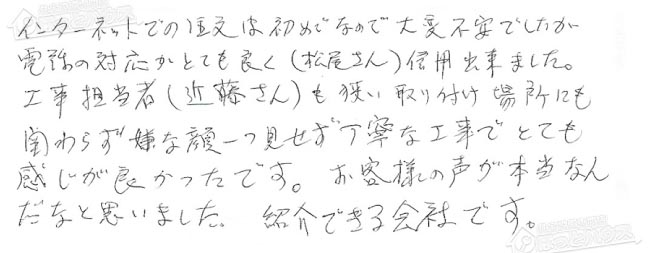 インターネットでの注文は初めてなので大変不安でしたが
電話の対応がとても良く(松尾さん)信用出来ました。
工事担当者(近藤さん)も狭い取り付け場所にも
関わらず嫌な顔一つ見せず丁寧な工事でとても
感じが良かったです。お客様の声が本当なん
だなと思いました。紹介できる会社です。